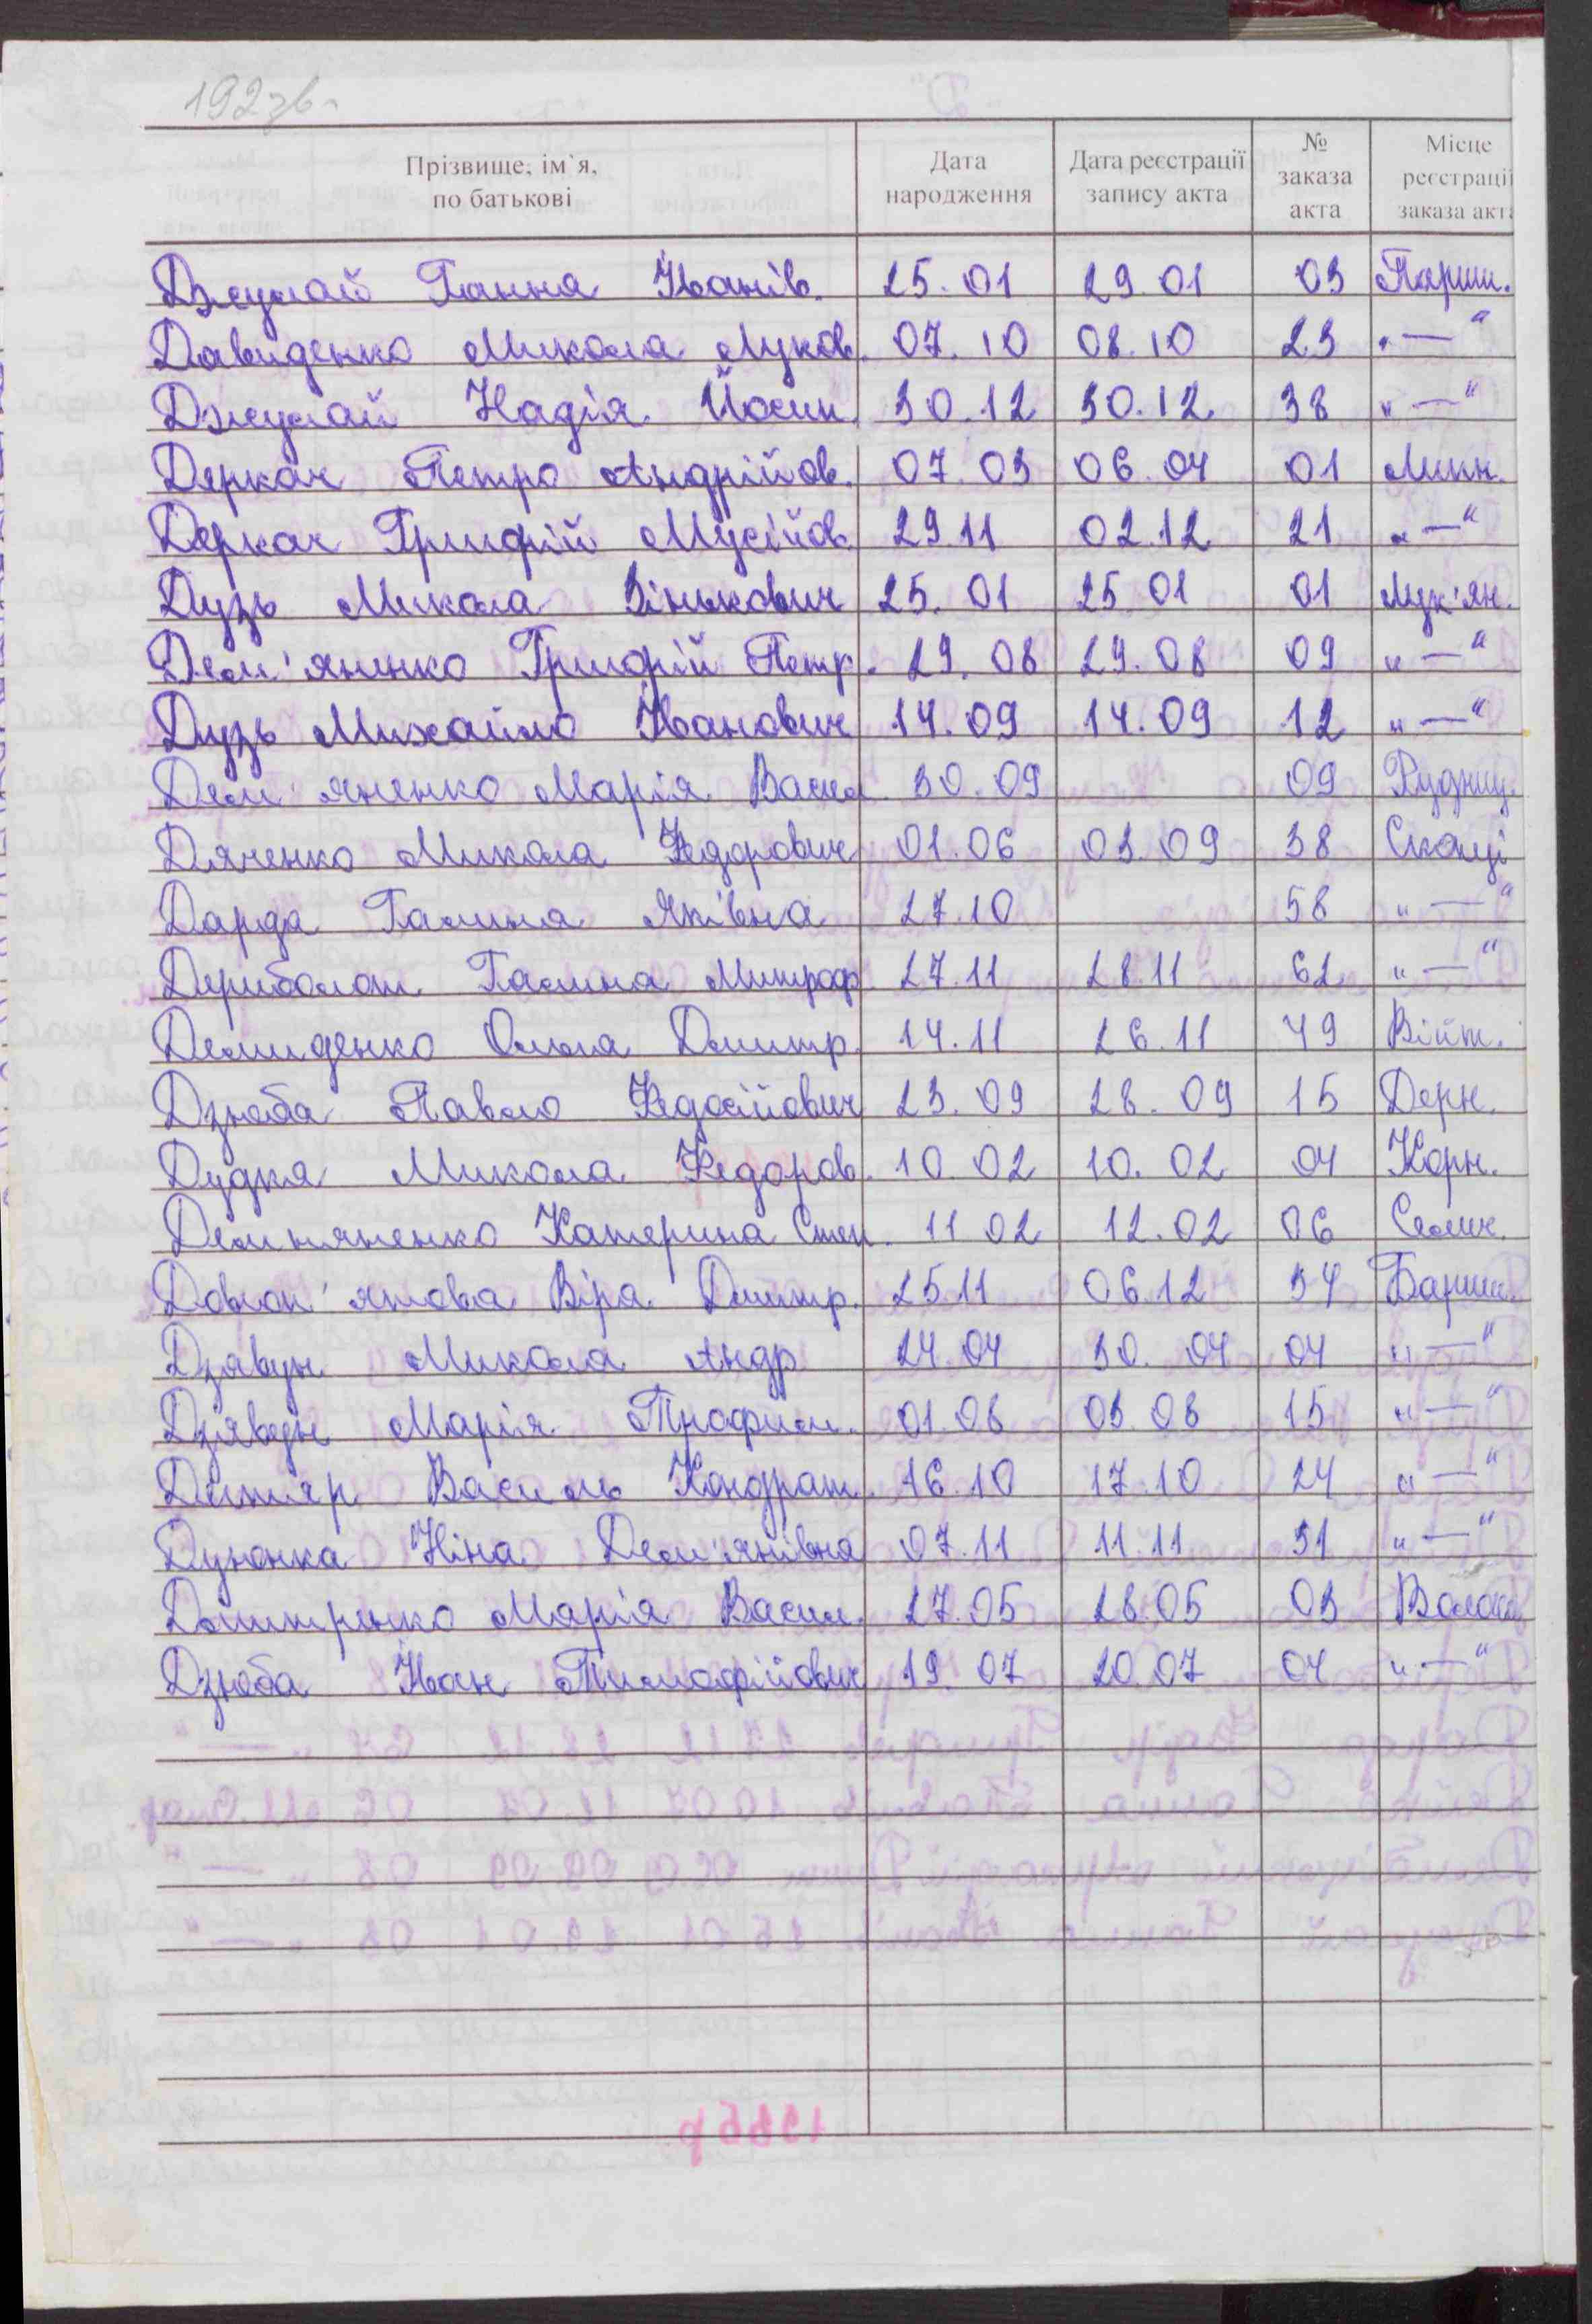 192зв
Прізвище, ім`я, по батькові | Дата народження | Дата реєстрації запису акта | № заказа акта | Місце реєстрації заказа акта
Джулай Ганна Іванів. 25.01 29.01 03 Парии.
Давиденко Микола Луков. 07.10 08.10 23 „—“
Джулай Надія Йосип. 30.12 30.12 38 „—“
Деркач Петро Андрійов. 07.03 06.04 01 Липн.
Деркач Григрій Мусійов. 29.11 02.12 21 „—“
Дузь Микола Зінькович 25.01 25.01 01 Лук'ян.
Дем'яненко Григрій Петр. 29.08 29.08 09 „—“
Дузь Михайло Іванович 14.09 14.09 12 „—“
Дем'яненко Марія Васил 30.09 09 Рудниц.
Дяченко Микола Федорович 01.06 03.09 38 Скопці
Дарда Галина Яківна 27.10 58 „—“
Дериболот Галина Митроф 27.11 28.11 62 „—“
Демиденко Ольга Дмитр. 14.11 26.11 49 Війт.
Дзюба Павло Федосійович 23.09 28.09 15 Дерн.
Дудка Микола Федоров. 10.02 10.02 04 Корн.
Демяненко Катерина Степ. 11.02 12.02 06 Селич.
Довгоп'ятова Віра Дмитр. 25.11 06.12 34 Бариш.
Дзявун Микола Андр 24.04 30.04 04 „—“
Дзявун Марія Трофим. 01.08 03.08 15 „—“
Дігтяр Василь Кондрат. 16.10 17.10 24 „—“
Дунонка Ніна Дем'янівна 07.11 11.11 31 „—“
Дмитренко Марія Васил. 27.05 28.05 03 Волош
Дзюба Іван Тимофійович 19.07 20.07 04 „—“